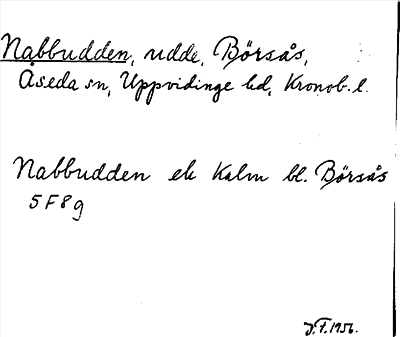 Nabbudden, udde, Börsås,
Åseda sn, Uppvidinge hd, Kronob. l.
Nabbudden ek Kalm bl. Börsås
5F8g
J.F. 1956.